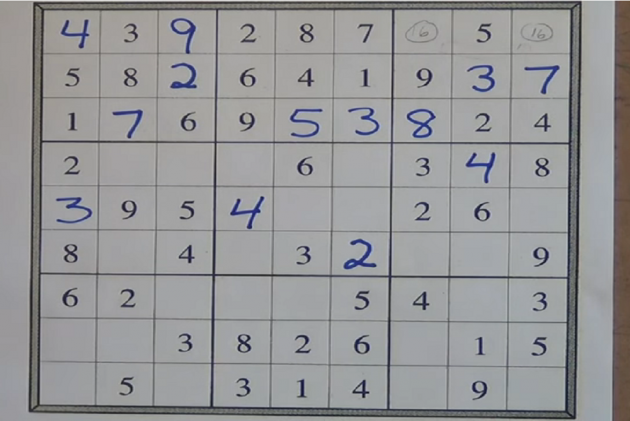 4 3 9 2 8 7 16 5 16
5 8 2 6 4 1 9 3 7
1 7 6 9 5 3 8 2 4
2 6 3 4 8
3 9 5 4 2 6
8 4 3 2 9
6 2 5 4 3
3 8 2 6 1 5
5 3 1 4 9